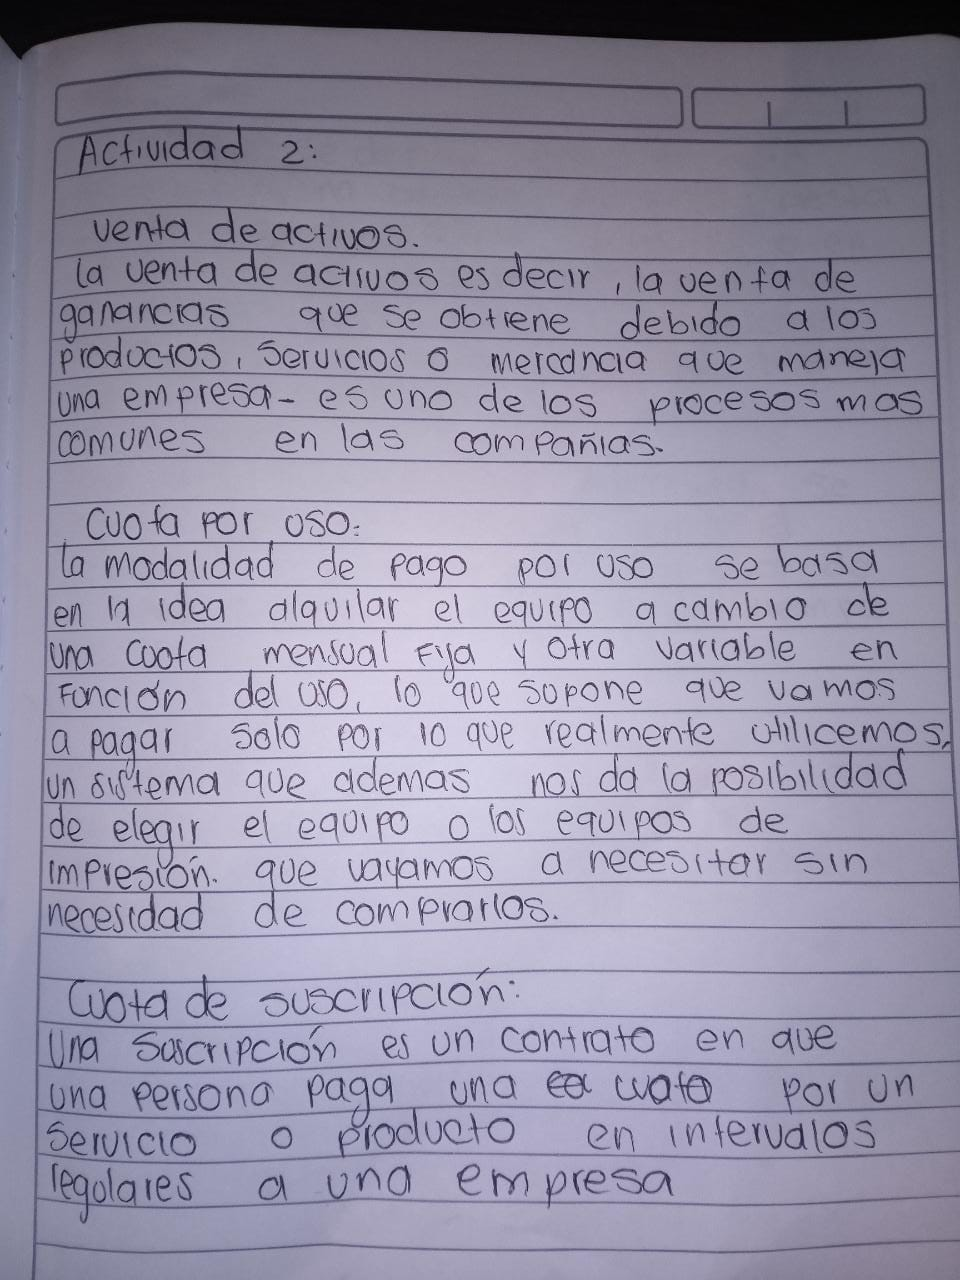 Actividad 2:
venta de activos.
la venta de activos es decir, la venta de
ganancias que se obtiene debido a los
productos, servicios o mercancia que maneja
una empresa - es uno de los procesos mas
comunes en las compañias.
Cuota por uso:
la modalidad de pago por uso se basa
en la idea alquilar el equipo a cambio de
una cuota mensual Fija y otra variable en
Función del uso, lo que supone que vamos
a pagar solo por lo que realmente utilicemos,
un sistema que ademas nos da la posibilidad
de elegir el equipo o los equipos de
impresión. que vayamos a necesitar sin
necesidad de comprarlos.
Cuota de suscripción:
Una Suscripción es un contrato en que
una persona paga una cuota por un
servicio o producto en intervalos
regulares a una empresa